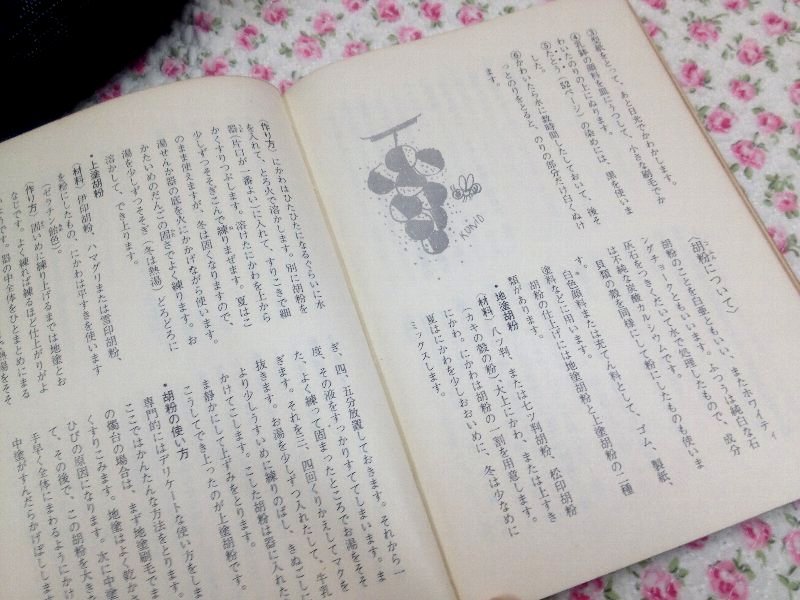 ③型紙をとって、あと日光でかわかします。
④乳鉢の顔料を皿にうつして、小さな刷毛でか
わいたのりの上にぬります。
⑤たとう(52ページ)の染めには、黒を使いま
した。
⑥かわいたら水に数時間したしておいて、後そ
っとのりをとると、のりの部分だけ白くぬけ
ます。
KUNIO
〈胡粉について〉
胡粉のことを白堊ともいい、またホワイティ
ングチョークともいいます。ふつうは純白な石
灰石をつきくだいて水で処理したもので、成分
は不純な炭酸カルシウムです。
貝類の殻を同様にして粉にしたものも使いま
す。
白色顔料または充てん料として、ゴム、製紙、
塗料などに用います。
胡粉の仕上げには地塗胡粉と上塗胡粉の二種
類があります。
・地塗胡粉
〈材料〉八ツ判、または七ツ判胡粉、松印胡粉
(カキの殻の粉)、大上にかわ、または上すき
にかわ。にかわは胡粉の一割を用意します。
夏はにかわを少しおおいめに、冬は少なめに
ミックスします。
〈作り方〉にかわはひたひたになるぐらいに水
を入れて、とろ火で溶かします。別に胡粉を
器(片口が一番よい)に入れて、すりこきで細
かくすりつぶします。溶けたにかわを上から
少しずつそそぎこんで練りまぜます。夏はこ
のまま使えますが、冬は固くなりますので、
湯せんか器の底を火にかかげながら使います。
かたいめのだんごの固さでよく練ります。お
湯を少しずつそそぎ(冬は熱湯)どろどろに
溶かして、でき上ります。
・上塗胡粉
〈材料〉伊印胡粉、ハマグリまたは雪印胡粉、
を粉にしたもの、にかわは平すきを使います
(ゼラチン飴色)。
〈作り方〉固いめに練り上げるまでは地塗とお
なじです。よく練れば練るほど仕上がりがよ
器の中全体をひとまとめにまる
ぎ、四、五分放置しておきます。それから一
度、その液をすっかりすててしまいます。ま
た、よく練って固まったところでお湯をそそ
ぎます。それを三、四回くりかえしてマクを
抜きます。お湯を少しずつ入れたして、牛乳
より少しうすいめに練りのばし、きぬごしに
かけてこします。こした胡粉は器に入れたま
ま静かにして上ずみをとります。
こうしてでき上ったのが上塗胡粉です。
・胡粉の使い方
専門的にはデリケートな使い方をしま
ここではかんたんな方法をとります。
の燭台の場合は、まず地塗刷毛でま
くすりこみます。地塗はよく乾か
ひびの原因になります。次に中塗
て、その後で、この胡粉を大き
手早く全体にまわるようにかけ
中塗がすんだらかげぼしします